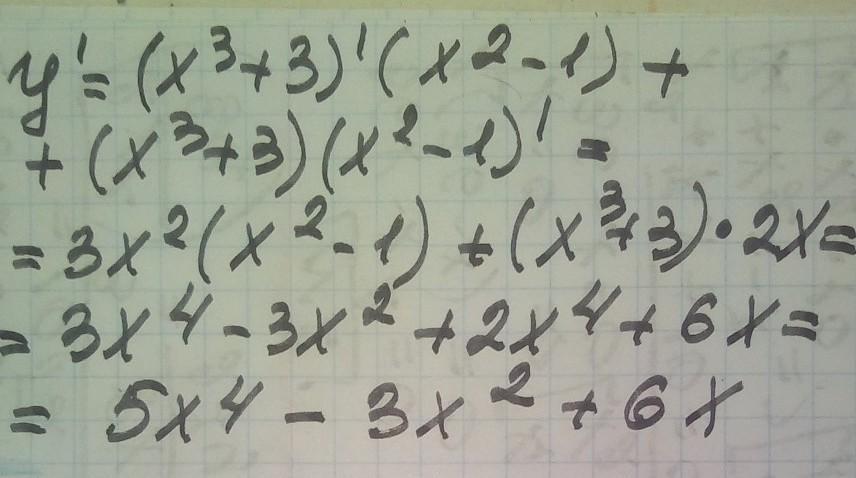 y' = (x³+3)'(x²-1) +
+ (x³+3)(x²-1)' =
= 3x²(x²-1) + (x³+3)·2x =
= 3x⁴ - 3x² + 2x⁴ + 6x =
= 5x⁴ - 3x² + 6x